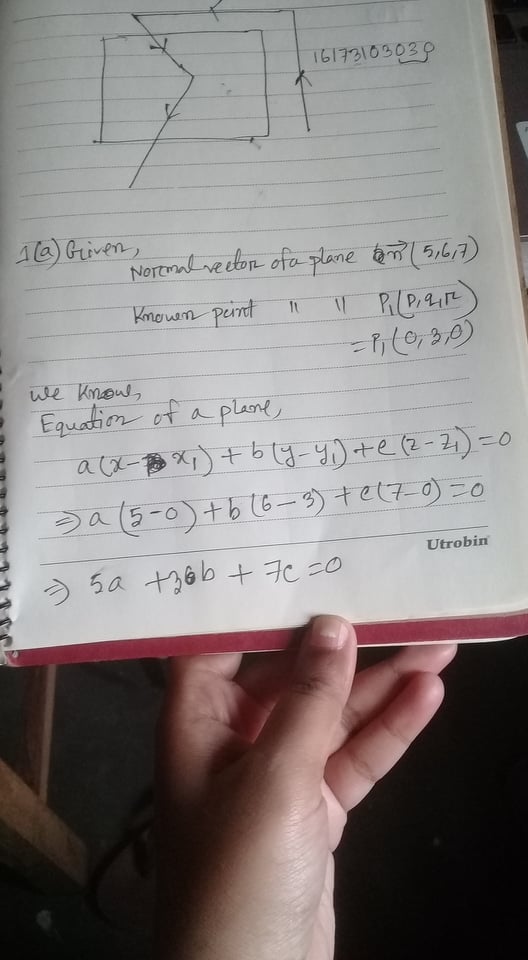 16173103030
1(a) Given,
Normal vector of a plane n⃗ (5,6,7)
Known point " " P₁(P,q,r)
= P₁(0,3,0)
We know,
Equation of a plane,
a(x-x₁) + b(y-y₁)+c(z-z₁)=0
⇒ a(5-0)+b(6-3)+c(7-0)=0
Utrobin
⇒ 5a +3b + 7c=0